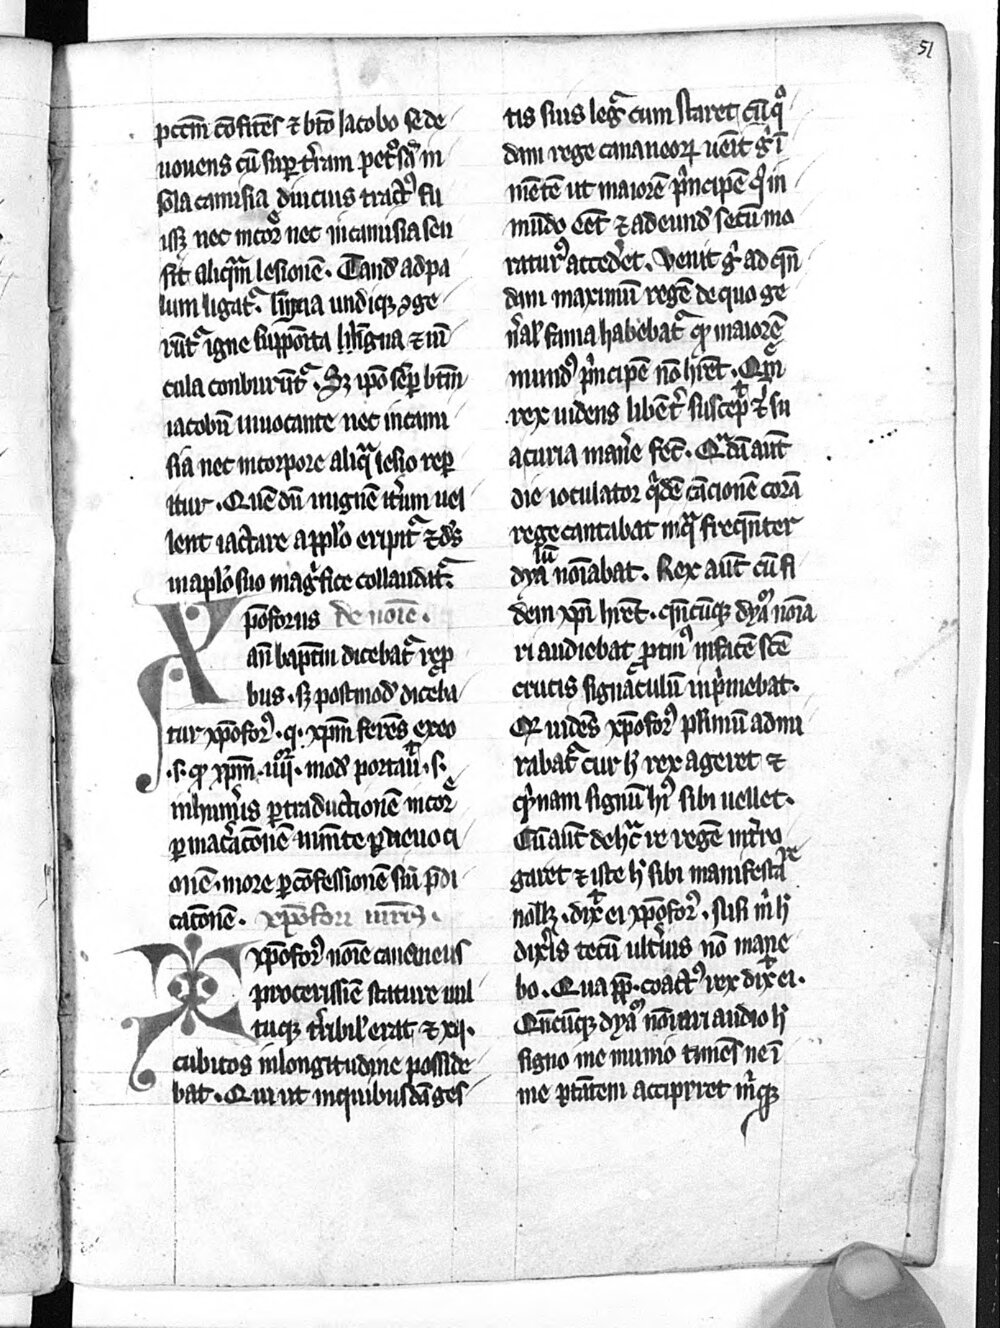 51
pctm̄ cōfitēs ⁊ btō Jacobo se de
uovens cū sup̄ t̄ram pet̄ᵒ sᵈ in
sola camisia diucius tractꝰ fu
issꝫ nec in corᵉ nec in camisia seu
sit aliqᵃm lesionē. Tandē ad pa
lum ligatᵃ. ligna undiqꝫ ꝯge
rūtᵃ igne supposita ligna ⁊ uī
cula conburūtᵃ. Sꝫ ip̄o sēp btm̄
iacobū inuocante nec in cami
sia nec in corpore aliqᵃ lesio rep
itur. Quē dū in ignē it̄um uel
lent iactare a pplō eripitᵃ ⁊ ds̄
in aplō suo magᵢfice collaudatᵃ.
Xpōforus de noīe.
an̄ baptm̄ dicebatᵃ rep̄
bus. sꝫ postmodᵒ diceba
tur xpōforꝰ. q. xpm̄ ferēs exeo
.s. qꝫ xpm̄ .iiijᵒʳ. modᵒ portauit .s.
in hūeris ꝑ traductionē in corᵉ
ꝑ maceracōnē in mēte ꝑ deuoci
onē. in ore ꝑ cōfessionē siue p̄di
catōnē. xpōfori mrīs.
Xpōforꝰ noīe cananeus
procerissiē stature uul
tuqꝫ t̄ribilᵉ erat ⁊ xij.
cubitos in longitudine posside
bat. Qui ut in quibusdā ges
tis suis legᵃ cum staret cū qᵒ
dam rege cananeorꝝ uēit ᵍ ī
mētē ut maiorē pᵢncipē qᵢ in
mūdo eēt ⁊ ad eundē secū mo
raturꝰ accederet. Venit ᵍ ad quē
dam maximū regē de quo ge
neralᵉ fama habebatᵃ qꝫ maiorē
mundꝰ pᵢncipē nō hret. Quē
rex uidens libētᵉ suscepit ⁊ i su
a curia manēe fecit. Quadā aut̄
die ioculator qᵢdē cācionē corā
rege cantabat in qᵃ freqūter
dyaᵇlū noīabat. Rex aut̄ cū fi
dem xpī hret. qn̄cūqꝫ dyaᵐ noīa
ri audiebat ꝓtinꝰ in faciē sc̄e
crucis signaculū inpᵢmebat.
Qᵒ uidēs xpōforꝰ plimū admi
rabatᵃ cur h rex ageret ⁊
qᵒnam signū hꝰ sibi uellet.
Cū aut̄ de hᵃ re regē int̄ro
garet ⁊ iste h sibi manifestare
nollꝫ. dixit ei xpōforꝰ. nisi m h
dixᵉis tecū ultᵢus nō mane
bo. Qua ppt̄. coactꝰ rex dixit ei.
Qn̄cūqꝫ dyaᵐ noīari audio h
signo me munio timēs ne ī
me ptātem acciperet mᵢqꝫ